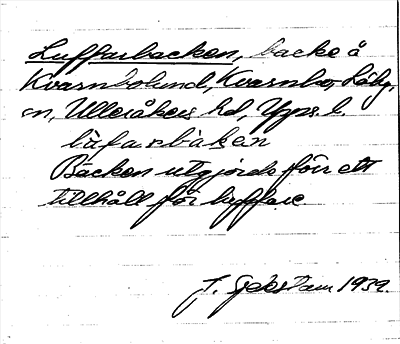 Luffarbacken, backe å
Kvarnbolund, Kvarnbo, Läby,
sn, Ulleråkers hd, Upps. l.
lùfarbàkən
Backen utgjorde förr ett
tillhåll för luffare.
J. 1939.